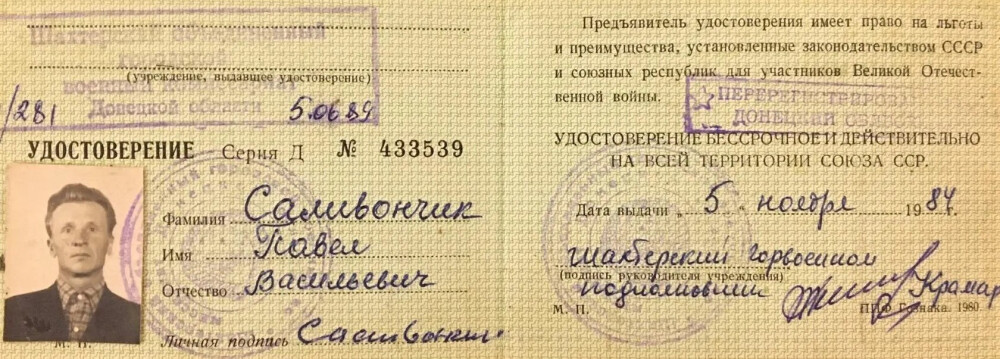 Шахтерский объединенный
городской
(учреждение, выдавшее удостоверение)
военный комиссариат
Донецкой области
/281 5.06.89
УДОСТОВЕРЕНИЕ Серия Д № 433539
Фамилия Саливончик
Имя Павел
Отчество Васильевич
М. П. Личная подпись
Предъявитель удостоверения имеет право на льготы
и преимущества, установленные законодательством СССР
и союзных республик для участников Великой Отечест-
венной войны.
ПЕРЕРЕГИСТРИРОВ
ДОНЕЦКИЙ ОБЛВО
УДОСТОВЕРЕНИЕ БЕССРОЧНОЕ И ДЕЙСТВИТЕЛЬНО
НА ВСЕЙ ТЕРРИТОРИИ СОЮЗА ССР.
Дата выдачи „ 5 „ ноября 1984 г.
Шахтерский горвоенком
(подпись руководителя учреждения)
подполковник Крамар
М. П. Гознака. 1980.